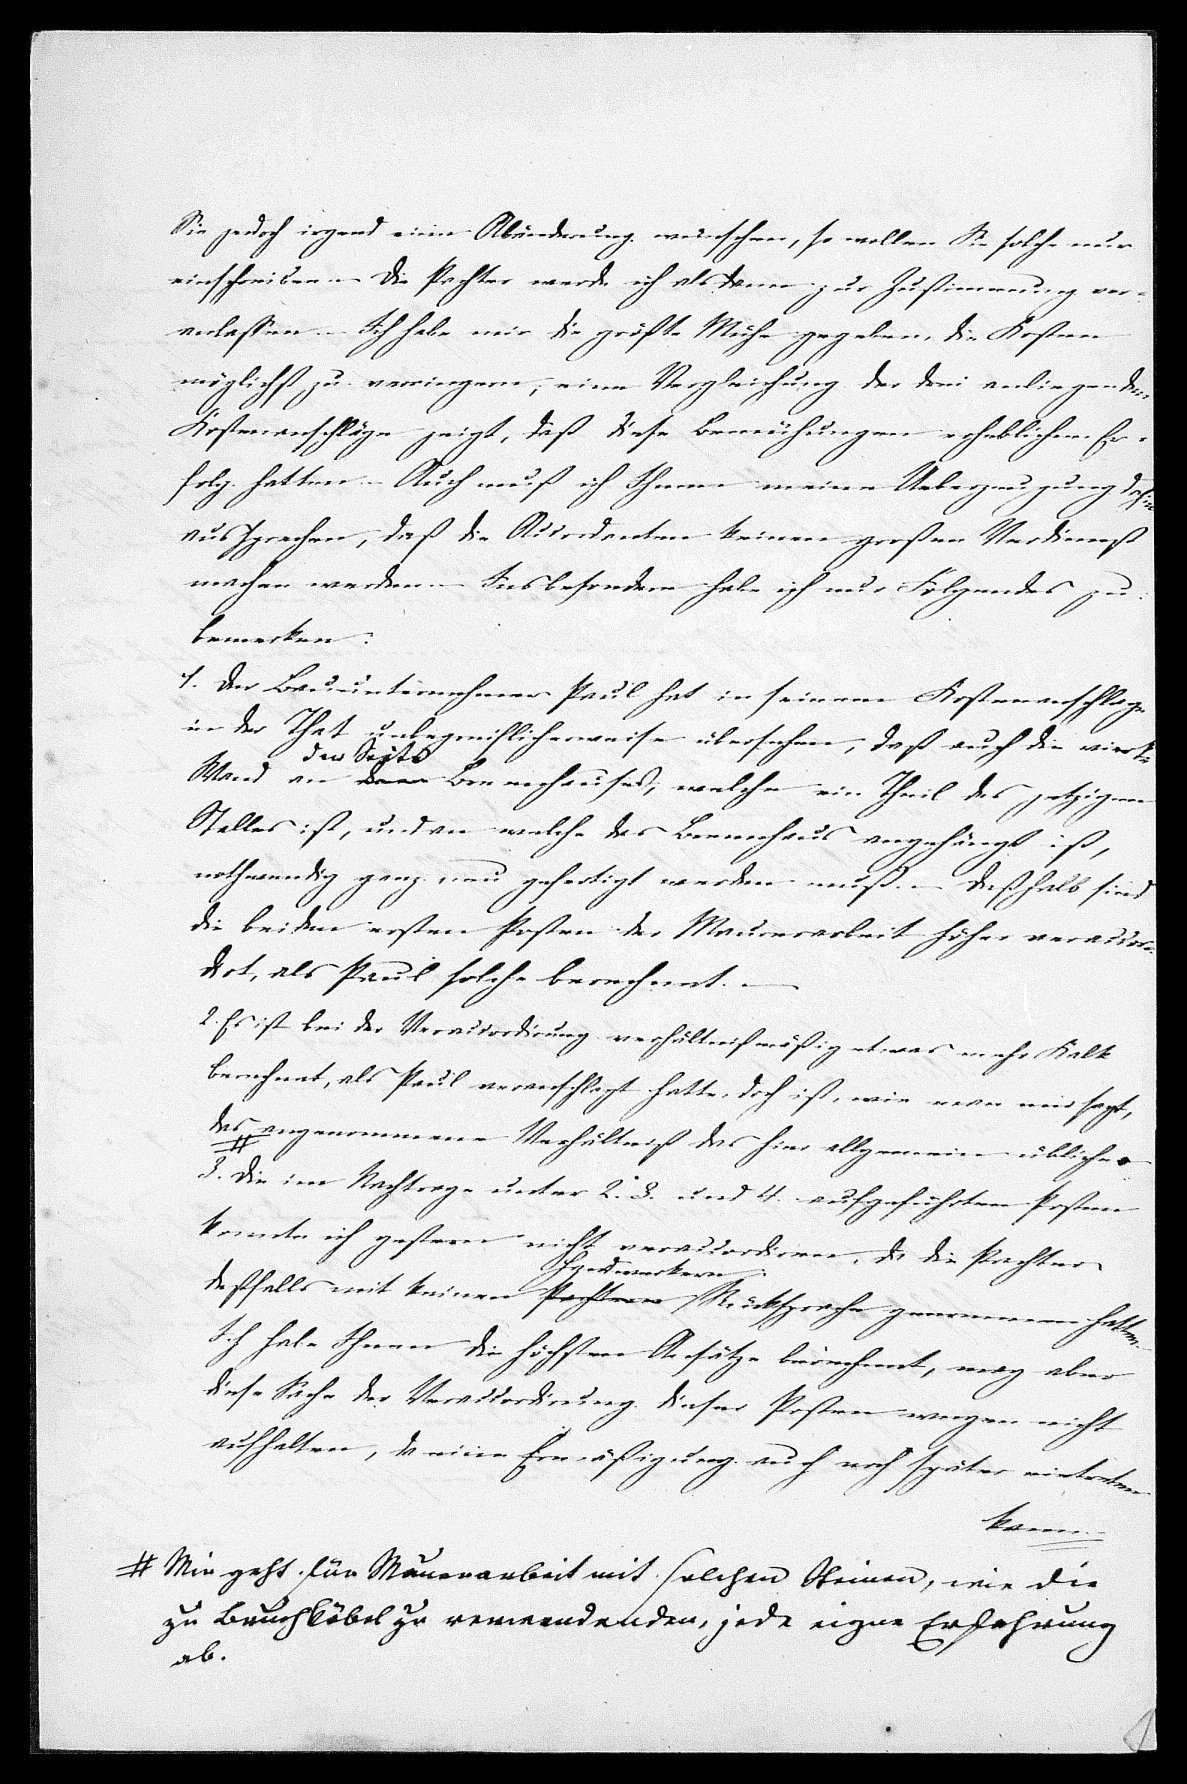 Sie jedoch irgend eine Abänderung wünschen, so wollen Sie solche nur
einschreiben. – Die Pachter werde ich alsdann zur Zustimmung ver-
anlassen. – Ich habe mir die größte Mühe gegeben, die Kosten
möglichst zu verringern, eine Vergleichung der drei anliegenden
Kostenanschläge zeigt, daß diese Bemühungen erheblichen Er-
folg hatten. – Auch muß ich Ihnen meine Ueberzeugung dahin
aussprechen, daß die Accordanten keinen großen Verdienst
machen werden. – Insbesondere habe ich nur Folgendes zu
bemerken:
1. Der Bauunternehmer Paul hat in seinem Kostenanschlage
in der That unbegreiflicherweise übersehen, daß auch die vierte
der Seite
Wand an dem Brennhauses, welche ein Theil des jetzigen
Stalles ist, und an welche das Brennhaus angehängt ist,
nothwendig ganz neu gefertigt werden muß. – Deßhalb sind
die beiden ersten Posten der Maurerarbeit höher veraccor-
dirt, als Paul solche berechnet. –
2. Es ist bei der Veraccordirung verhältnißmäßig etwas mehr Kalk
berechnet, als Paul veranschlagt hatte, doch ist, wie man mir sagt,
das angenommene Verhältniß das hier allgemein übliche.
#
3. Die im Nachtrage unter 2. 3. und 4. aufgeführten Posten
konnte ich gestern nicht veraccordiren, da die Pachter
Handwerkern
deßfalls mit keinen Pachtern Rücksprache genommen hatten.
Ich habe Ihnen die höchsten Ansätze berechnet, mag aber
diese Sache der Veraccordirung dieser Posten wegen nicht
aufhalten, da eine Ermäßigung auch noch später eintreten
kann. –
# Mir geht für Maurerarbeit mit solchen Steinen, wie die
zu Bruchköbel zu verwendenden, jede eigne Erfahrung
ab.